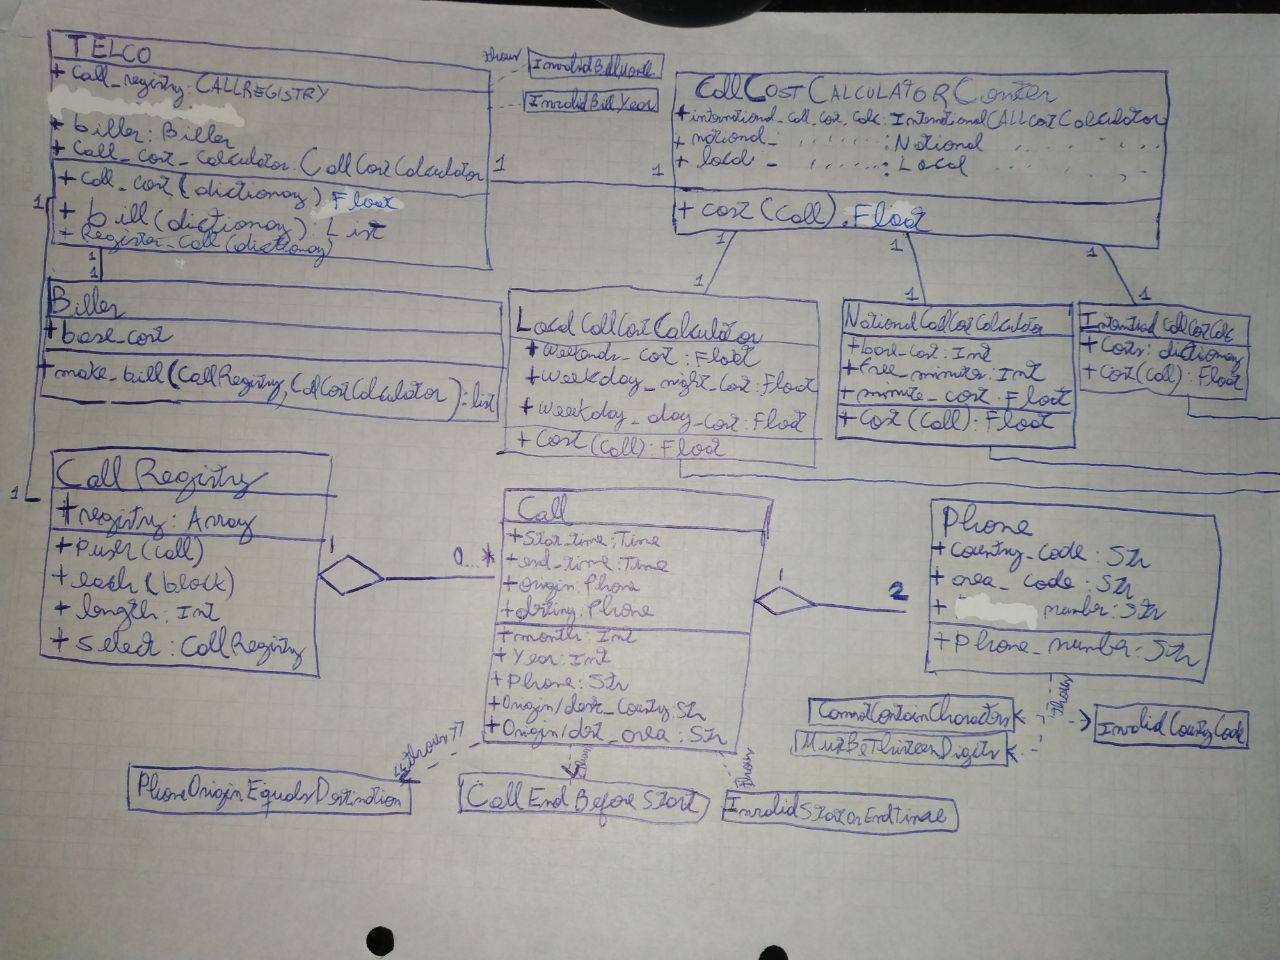 TELCO
+ call_registry: CALLREGISTRY
+ biller: Biller
+ Call_cost_calculator: CallCostCalculator
+ call_cost(dictionary): Float
+ bill(dictionary): List
+ Register_Call(dictionary)
throw
InvalidBillMonth
InvalidBillYear
CallCOSTCALCULATORCenter
+ international_call_cost_calc: InternationalCALLCostCalculator
+ national_ " " " " " : National " " " "
+ local_ " " " " : Local " "
+ cost(call): Float
1
1
1
1
1
1
1
1
1
1
1
1
Biller
+ base_cost
+ make_bill(CallRegistry, CallCostCalculator): list
LocalCallCostCalculator
+ Weekends_cost: Float
+ Weekday_night_cost: Float
+ Weekday_day_cost: Float
+ Cost(Call): Float
NationalCallCostCalculator
+ base_cost: Int
+ free_minutes: Int
+ minute_cost: Float
+ Cost(Call): Float
+ Costs: dictionary
+ Cost(Call): Float
Call Registry
+ registry: Array
+ each(block)
+ length: Int
+ select: CallRegistry
1
0...*
Call
+ end_time: Time
+ origin: Phone
+ month: Int
+ Year: Int
+ Phone: Str
+ Origin/dest_Country: Str
+ Origin/dest_area: Str
1
2
Phone
+ country_code: Str
+ area_code: Str
+ number: Str
+ Phone_number: Str
<<throws>>
throw
throw
throw
CannotContainCharacters
MustBeThirteenDigits
InvalidCountyCode
PhoneOriginEqualsDestination
CallEndBeforeStart
InvalidStartOrEndTime